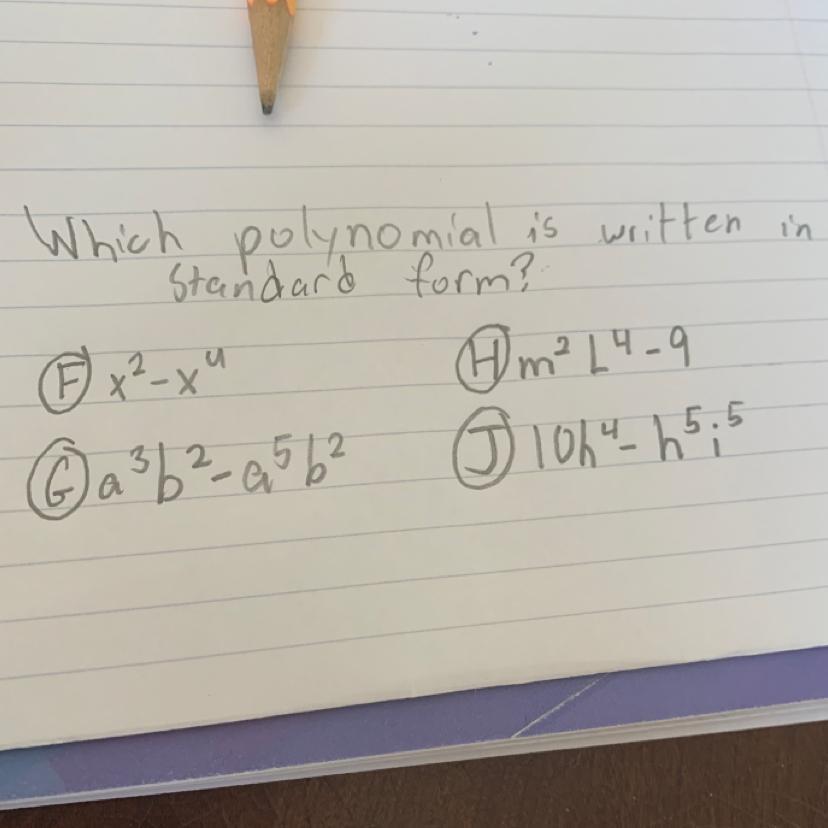 Which polynomial is written in
Standard form?
(F) x²-x⁴
(H) m² L⁴-9
(G) a³b²-a⁵b²
(J) 10h⁴-h⁵i⁵